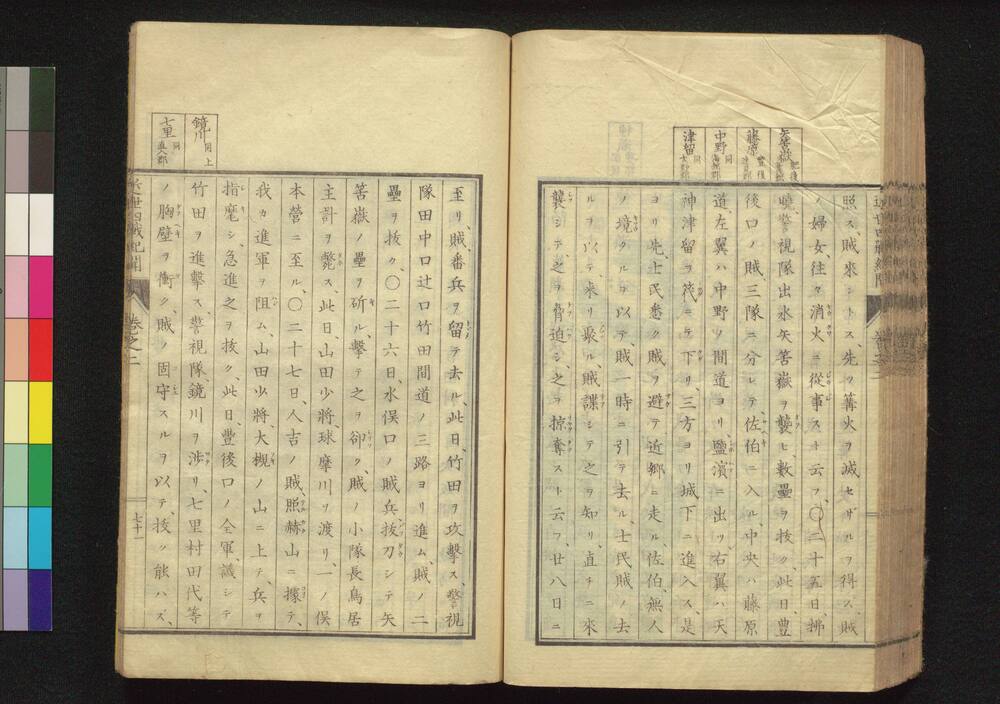 矢筈嶽 肥後
藤原 豊後
中野 同
津留 同 大野郡
照ス、賊來ントス、先ヅ篝火ヲ滅セザルヲ得ス、賊
ノ婦女、往々消火ニ從事スト云フ、〇二十五日、拂
曉、警視隊出水矢筈嶽ヲ襲ヒ、數壘ヲ抜ク、此日、豊
後口ノ賊三隊ニ分レテ、佐伯ニ入ル、中央ハ藤原
道、左翼ハ中野ノ間道ヨリ、鹽濱ニ出ツ、右翼ハ天
神津留ヲ筏ニテ下リ、三方ヨリ城下ニ進入ス、是
ヨリ先、士民悉ク賊ヲ避テ近郷ニ走ル、佐伯、無人
ノ境クルヲ以テ、賊一時ニ引テ去ル、士民賊ノ去
ルヲ以テ、来リ聚ル、賊諜シテ之ヲ知リ、直チニ來
襲シテ、之ヲ脅迫シ、之ヲ掠奪スト云フ、廿八日ニ
鏡川 同上
七里 同 直入郡
至リ、賊、番兵ヲ留テ去ル、此日、竹田ヲ攻撃ス、警視
隊田中口辻口竹田間道ノ三路ヨリ進ム、賊ノ二
壘ヲ抜ク、〇二十六日、水俣口ノ賊兵抜刀シテ矢
筈嶽ノ壘ヲ斫ル、撃テ之ヲ卻ク、賊ノ小隊長鳥居
主計ヲ斃ス、此日、山田少將、球摩川ヲ渡リ、一ノ俣
本營ニ至ル、〇二十七日、人吉ノ賊、照赫山ニ據テ、
我カ進軍ヲ阻ム、山田少將、大槻ノ山ニ上テ、兵ヲ
指麾シ、急進之ヲ抜ク、此日、豊後口ノ全軍、議シテ
竹田ヲ進撃ス、警視隊鏡川ヲ渉リ、七里村田代等
ノ胸壁ヲ衝ク、賊ノ固守スルヲ以テ、抜ク能ハズ、
卷之二
七十一